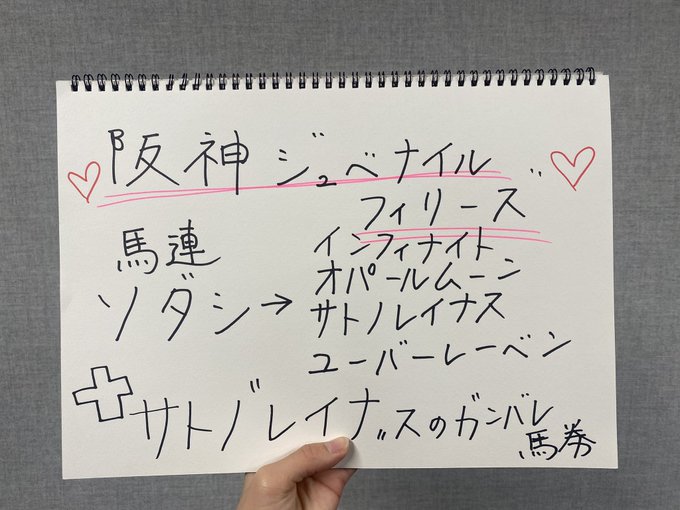 阪神ジュベナイル
フィリーズ
馬連
ソダシ→
インフィナイト
オパールムーン
サトノレイナス
ユーバーレーベン
サトノレイナスのガンバレ
馬券